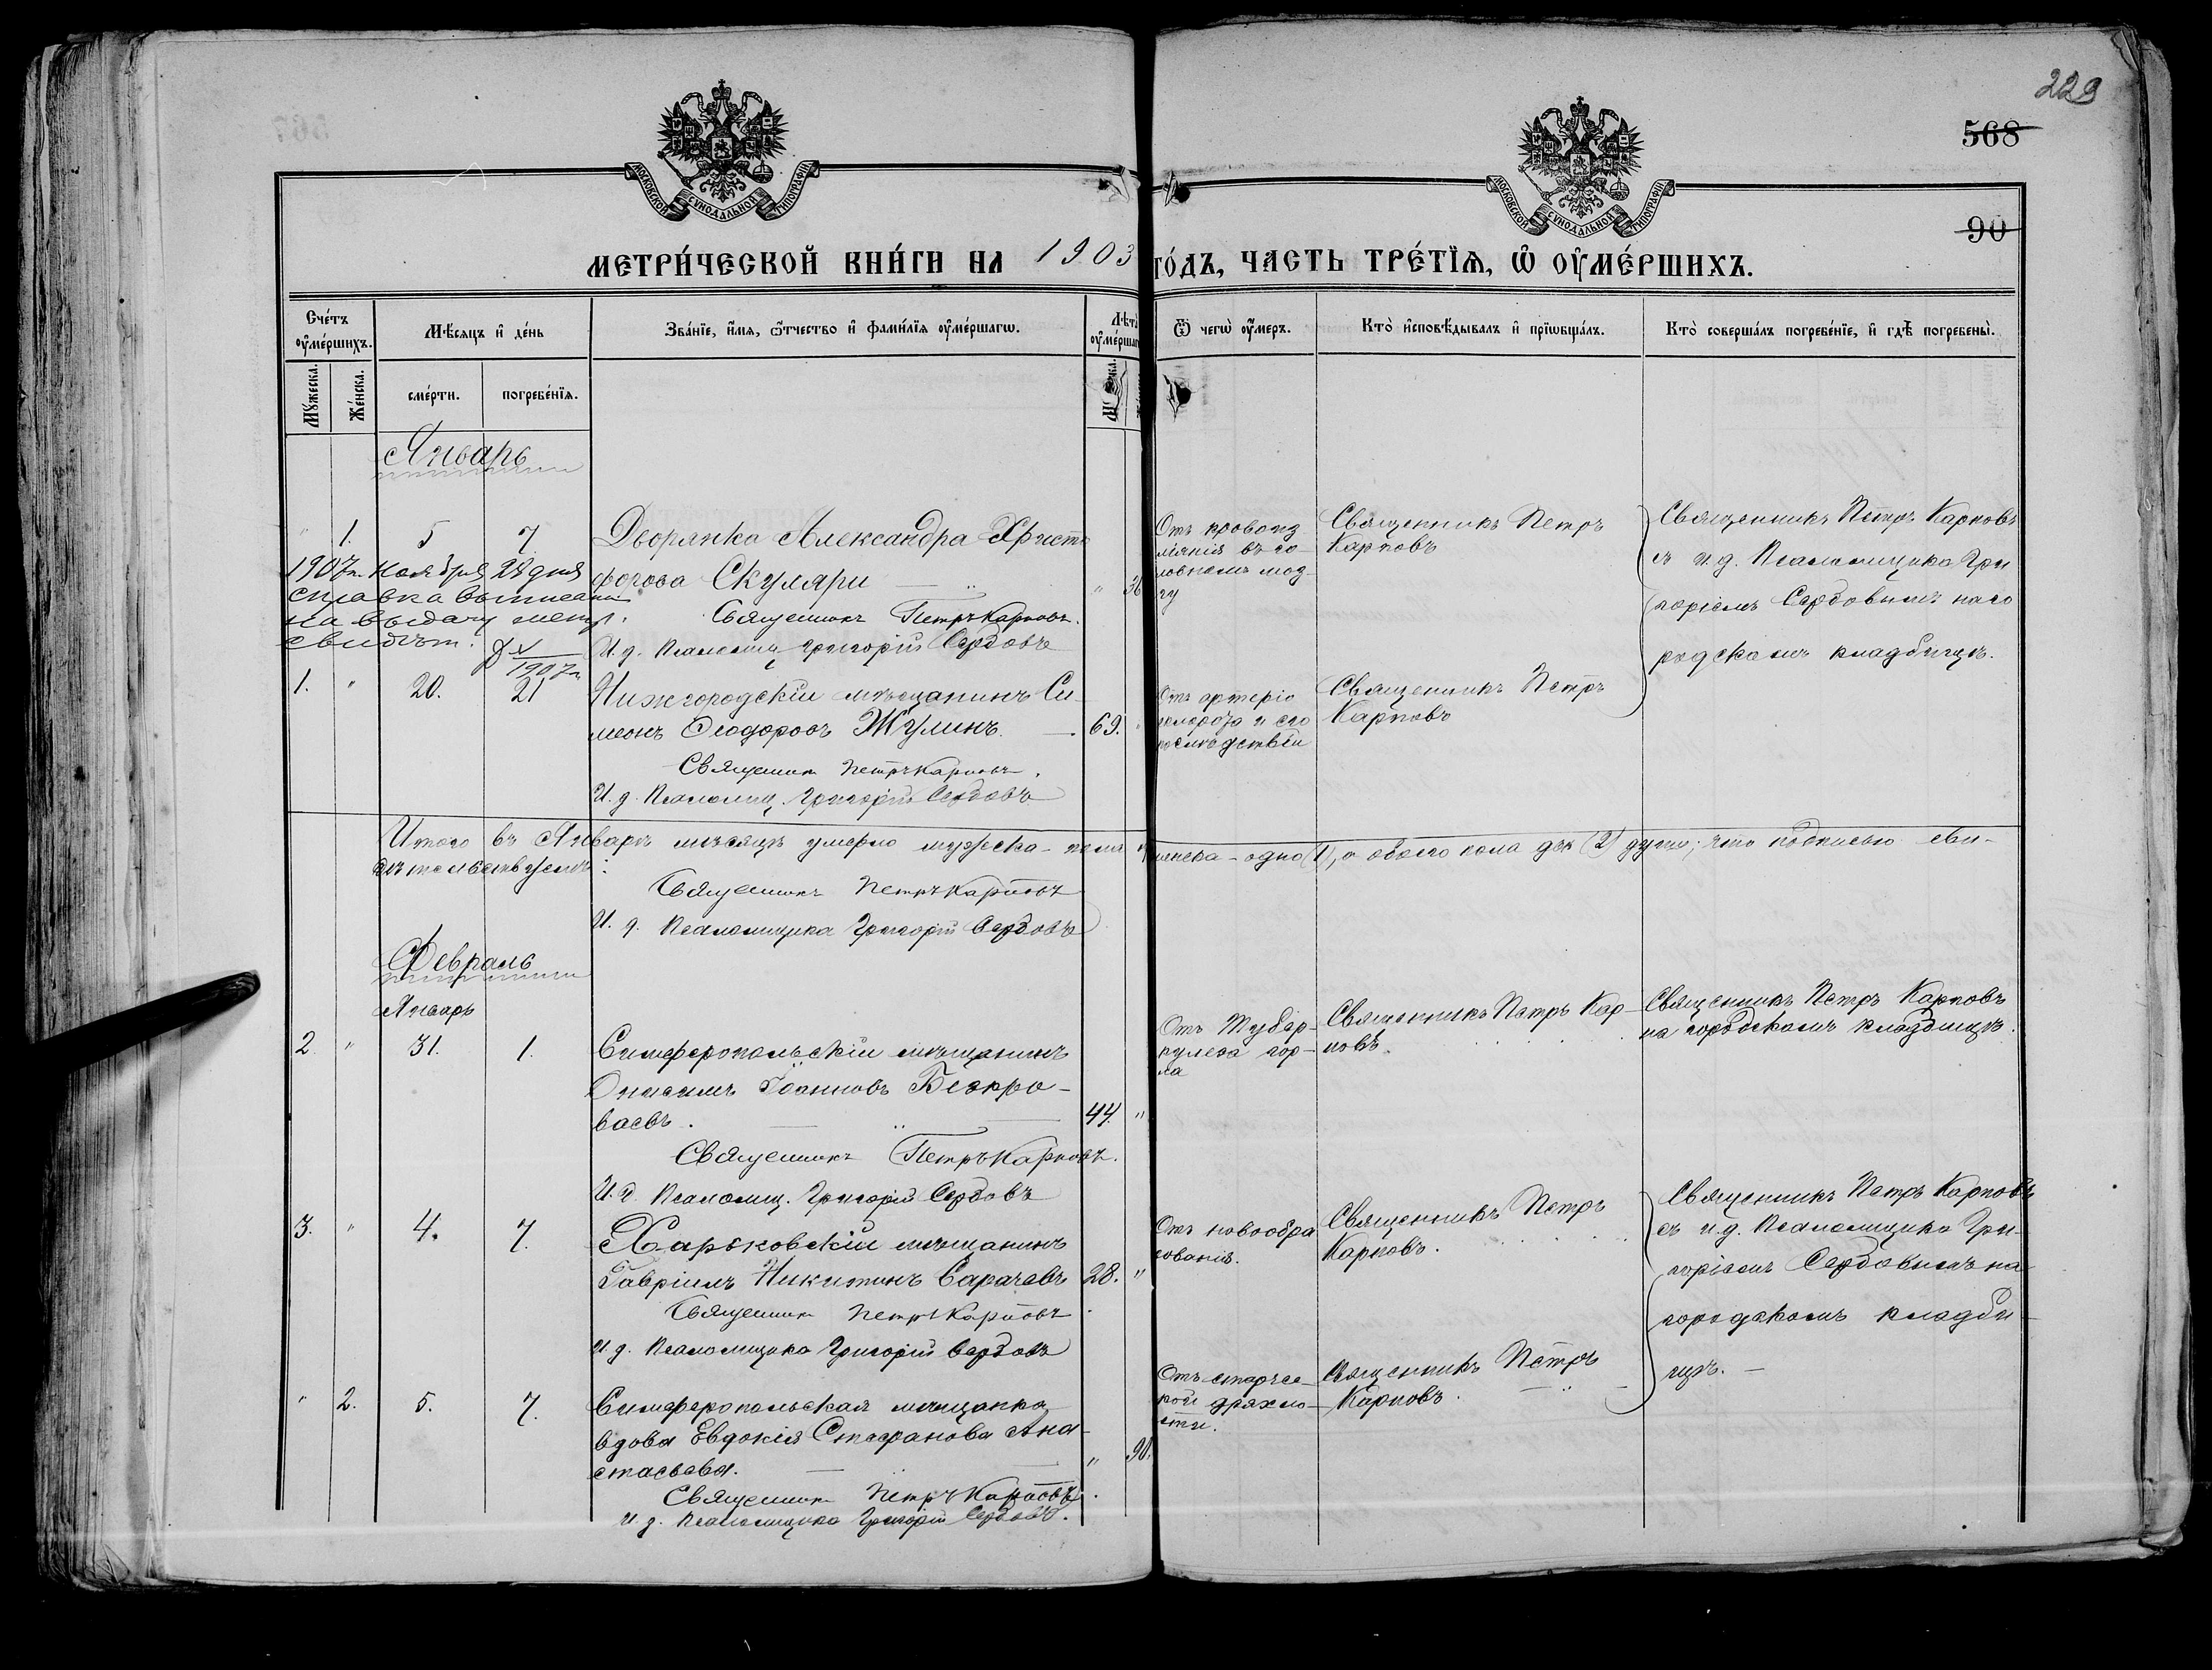 229
568
90
МОСКОВСКОЙ СѴНОДАЛЬНОЙ ТИПОГРАФІИ
МОСКОВСКОЙ СѴНОДАЛЬНОЙ ТИПОГРАФІИ
МЕТРИ́ЧЕСКОЙ КНИ́ГИ НА 1903 ГО́ДЪ, ЧАСТЬ ТРЕ́ТЇѦ, Ѡ ОУМЕ́РШИХЪ.
Сче́тъ оуме́ршихъ.
Мѣ́сяцъ и де́нь
Зва́нїе, и́мя, о́тчество и фами́лїя оуме́ршагѡ.
Лѣтъ оуме́ршаг
Ѿ чегѡ̀ оу́меръ.
Кто̀ исповѣ́дывалъ и прїѡбща́лъ.
Кто̀ соверша́лъ погребе́нїе, и гдѣ̀ погребены̀.
Мꙋ́жеска.
Же́нска.
сме́рти.
погребе́нїя.
Январь
" 1. 5 7. Дворянка Александра Христо
форова Скуляри " 36
Священникъ Петръ Карповъ.
И. д. Псаломщ. Григорій Сербовъ
1907 г. Ноября 28 дня
справка выписана
на выдачу метр.
свидѣт.
1907 г.
Отъ кровоиз
ліянія въ го-
ловномъ моз-
гу
Священникъ Петръ
Карповъ
Священникъ Петръ Карповъ
съ и. д. Псаломщика Гри
горіемъ Сербовымъ на го
родскомъ кладбищѣ.
1. " 20. 21 Нижгородскій мѣщанинъ Си-
меонъ Ѳеодоровъ Жулинъ. 69. "
Священник Петръ Карповъ.
И. д. Псаломщ. Григорій Сербовъ
Отъ артеріо
склероза и его
послѣдствій
Священникъ Петръ
Карповъ
Итого въ Январѣ мѣсяцѣ умерло мужеска-пола женска-одно (1), а обоего пола двѣ (2) души; что подписью сви-
дѣтельствуемъ:
Священникъ Петръ Карповъ
И. д. Псаломщика Григорій Сербовъ
Февраль
Январь
2 " 31. 1. Симферопольскій мѣщанинъ
Онисимъ Іоанновъ Безкро-
ваевъ. 44. "
Священникъ Петръ Карповъ.
И. д. Псаломщ. Григорій Сербовъ
Отъ Тубер-
кулеза гор-
ла
Священникъ Петръ Кар-
повъ.
Священникъ Петръ Карповъ
на городскомъ кладбищѣ.
3. " 4. 7. Харьковскій мѣщанинъ
Гавріилъ Никитинъ Сарачевъ 28. "
Священник Петръ Карповъ
И. д. Псаломщика Григорій Сербовъ
Отъ новообра
зованія.
Священникъ Петръ
Карповъ.
Священникъ Петръ Карповъ
съ и. д. Псаломщика Гри-
горіемъ Сербовымъ на
городскомъ кладби-
щѣ.
" 2. 5. 7. Симферопольская мѣщанка
вдова Евдокія Стефанова Ана-
стасьева. " 90.
Священник Петръ Карповъ.
И. д. Псаломщика Григорій Сербовъ.
Отъ старчес-
кой дряхло-
сти.
Священникъ Петръ
Карповъ.